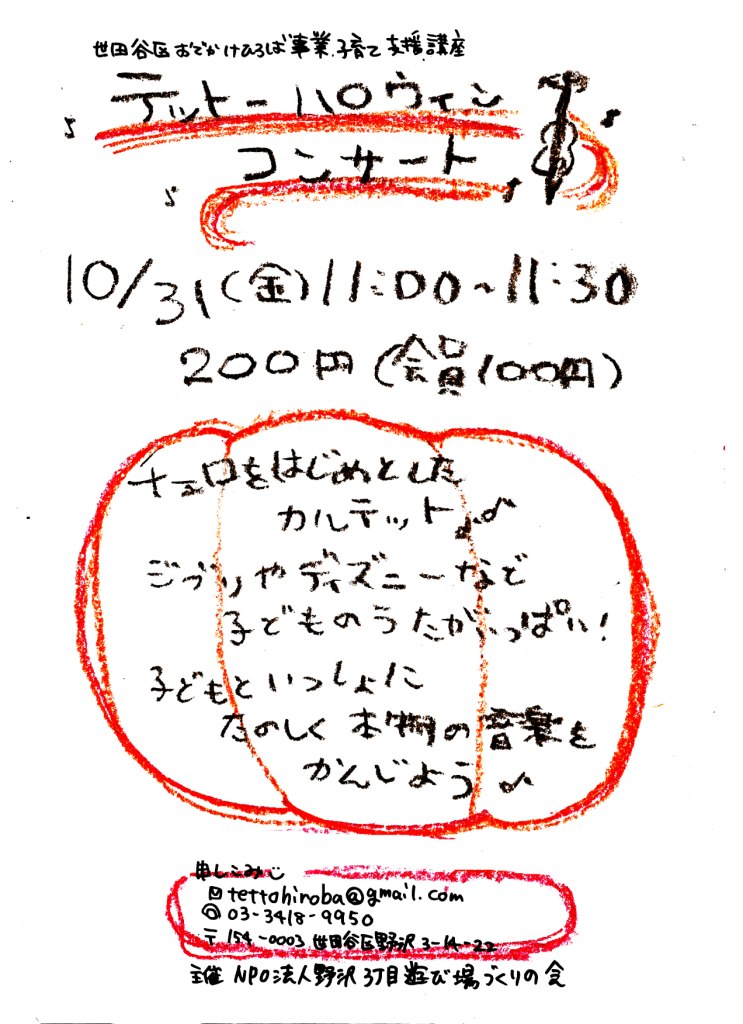 世田谷区おでかけひろば事業.子育て支援講座
テットーハロウィン
コンサート
10/31(金)11:00~11:30
200円(会員100円)
チェロをはじめとした
カルテット♪♪
ジブリやディズニーなど
子どものうたがいっぱい!
子どもといっしょに
たのしく本物の音楽を
かんじよう♪
申しこみ
tettohiroba@gmail.com
03-3418-9950
〒154-0003 世田谷区野沢3-14-22
主催 NPO法人野沢3丁目遊び場づくりの会